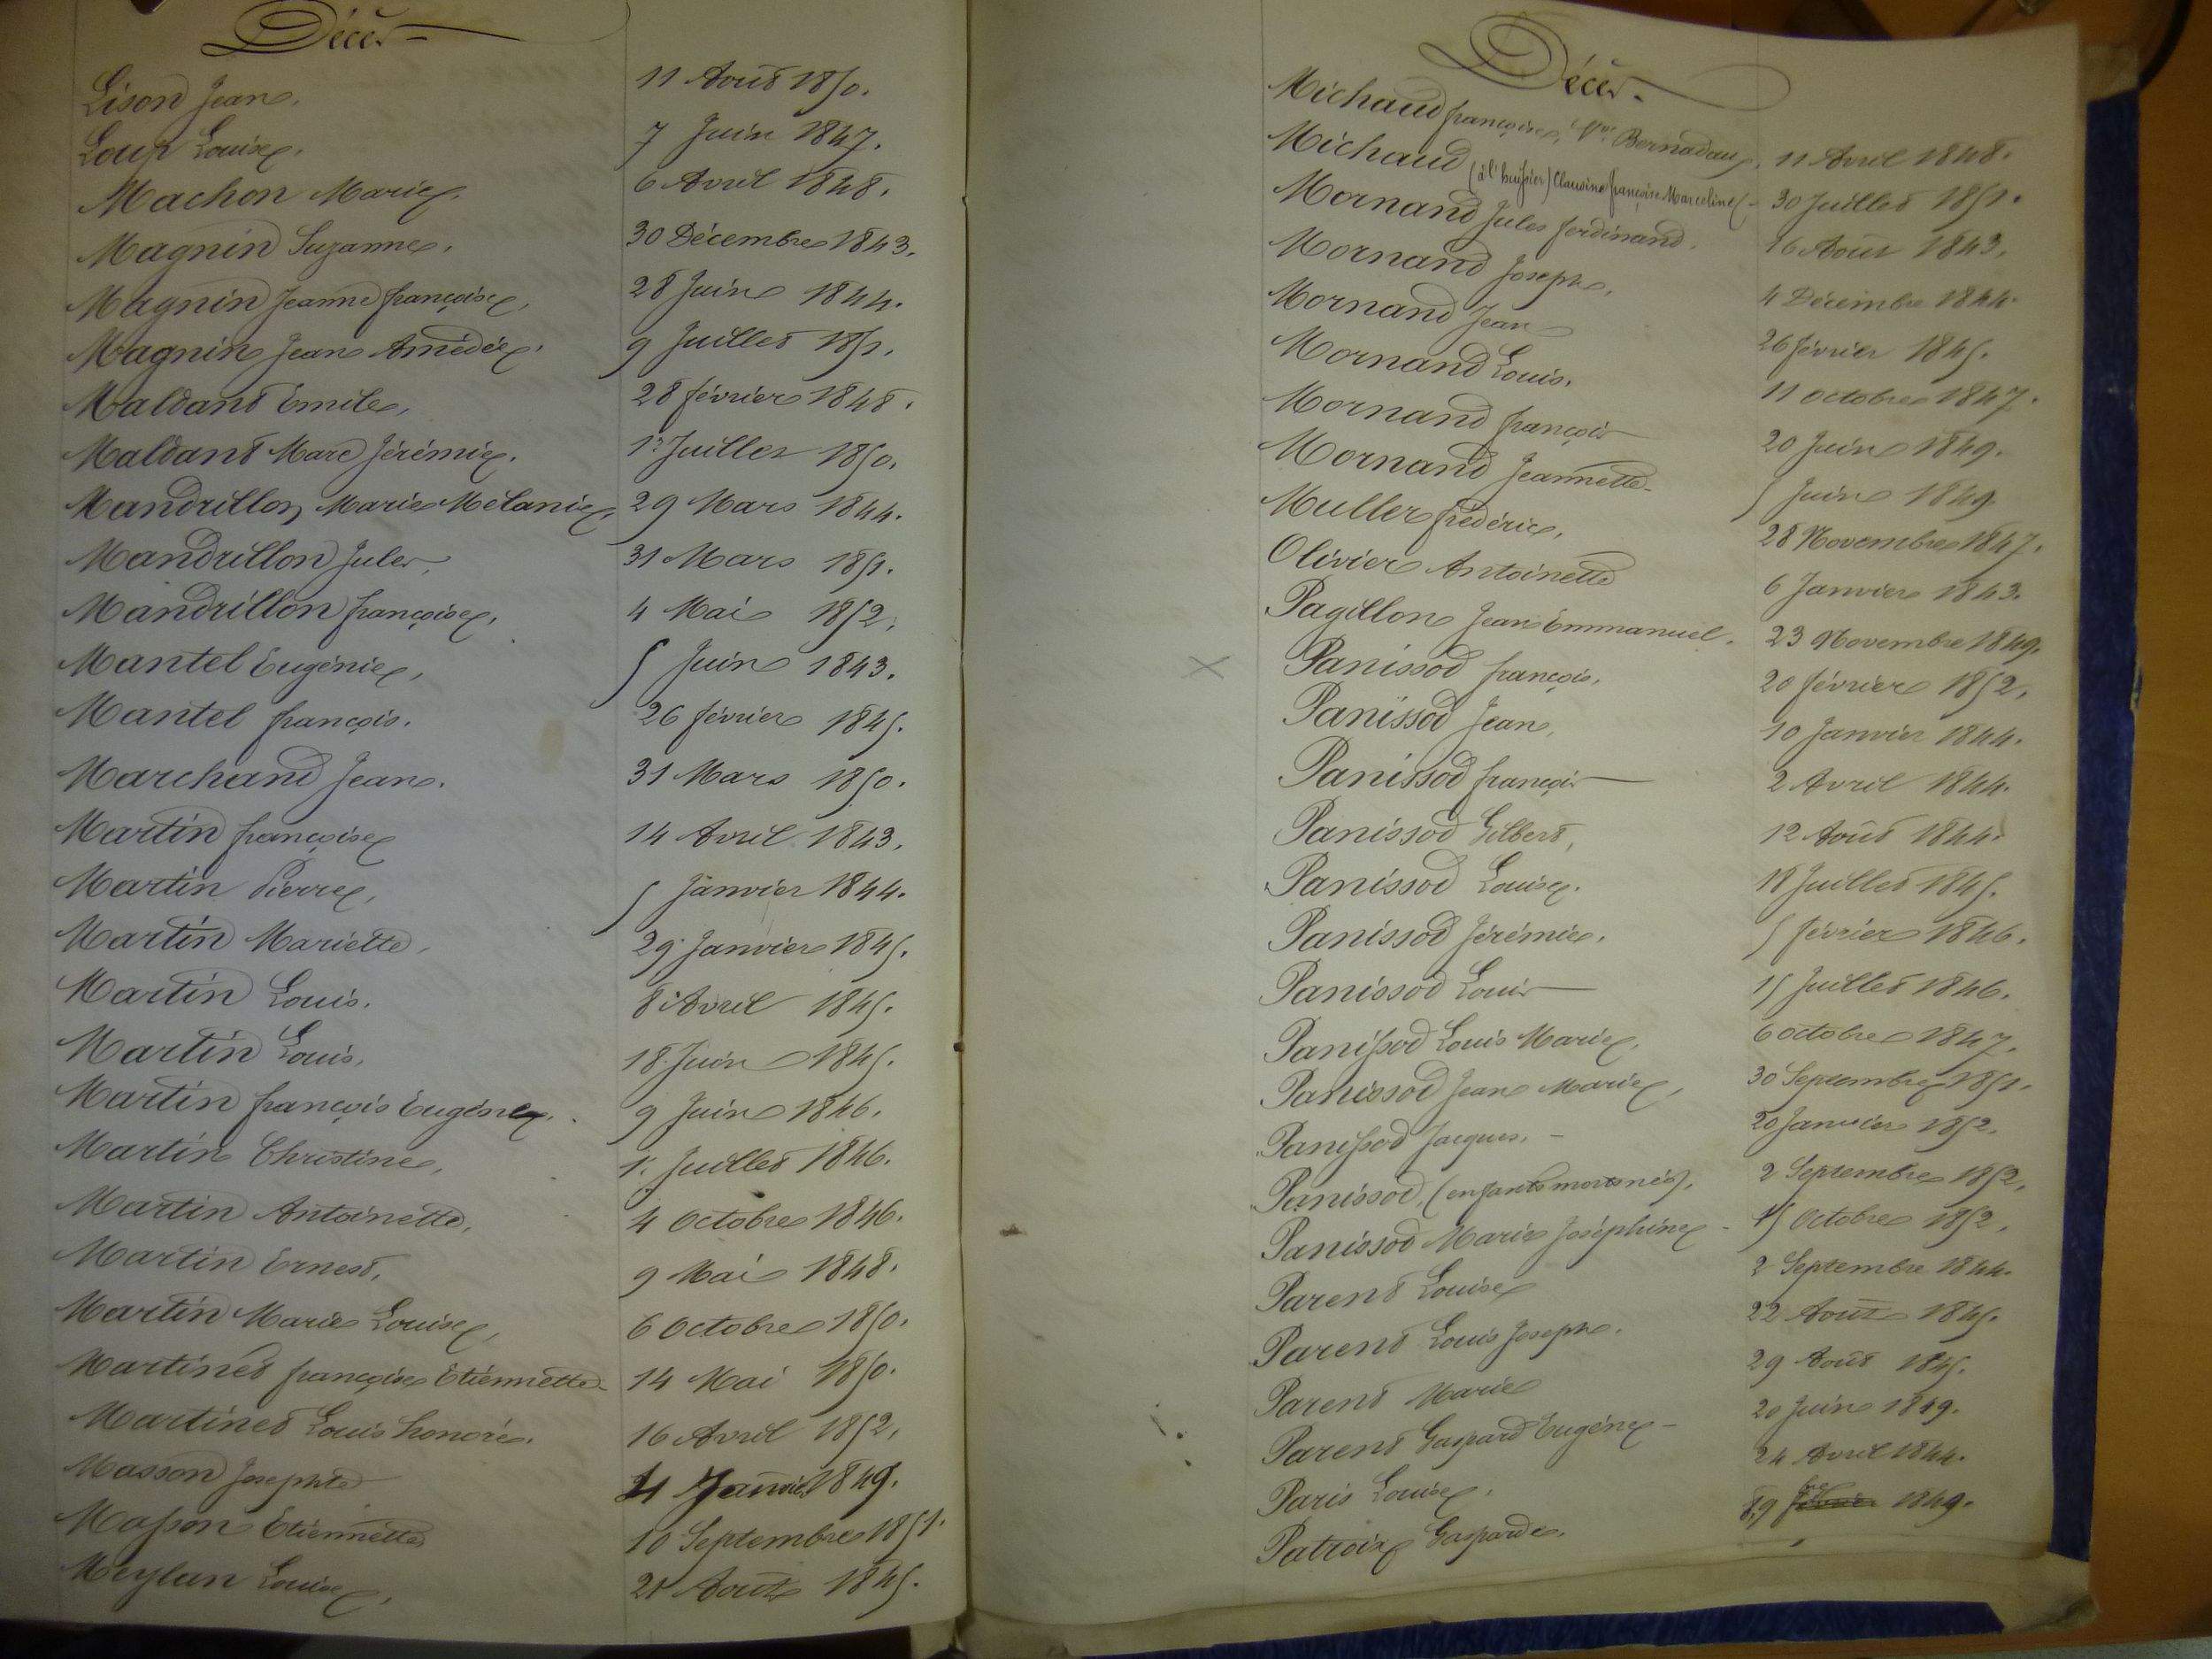 Décès
Lison Jean. 11 Août 1850.
Loup Louise. 7 Juin 1847.
Machon Marie. 6 Avril 1848.
Magnin Suzanne. 30 Décembre 1843.
Magnin Jeanne françoise, 28 Juin 1844.
Magnin Jean Amédée. 9 Juillet 1851.
Maldant Emile, 28 février 1848.
Maldant Marc Jérémie. 1er Juillet 1850.
Mandrillon Marie Mélanie, 29 Mars 1844.
Mandrillon Jules, 31 Mars 1851.
Mandrillon françoise, 4 Mai 1852.
Mantel Eugénie, 5 Juin 1843.
Mantel françois. 26 février 1845.
Marchand Jean. 31 Mars 1850.
Martin françoise 14 Avril 1843.
Martin Pierre, 5 Janvier 1844.
Martin Mariette, 29 Janvier 1845.
Martin Louis. 8 Avril 1845.
Martin Louis, 18 Juin 1845.
Martin françois Eugène. 9 Juin 1846.
Martin Christine, 1er Juillet 1846.
Martin Antoinette, 4 Octobre 1846.
Martin Ernest, 9 Mai 1848.
Martin Marie Louise, 6 Octobre 1850.
Martinet françoise Etiennette 14 Mai 1850.
Martinet Louis honoré. 16 Avril 1852,
Masson Josephte Janvier 1849.
Masson Etiennette 10 Septembre 1851.
Meylan Louise, 21 Août 1845.
Décès.
Michaud françoise, Vve Bernadaux, 11 Avril 1848.
Michaud (à l'huissier) Claudine françoise Marceline 30 Juillet 1851.
Mornand Jules ferdinand. 16 Août 1843.
Mornand Joseph, 4 Décembre 1844.
Mornand Jean 26 février 1845.
Mornand Louis. 11 octobre 1847.
Mornand françois 20 Juin 1849.
Mornand Jeannette 5 Juin 1849.
Muller frédéric, 28 Novembre 1847.
Olivier Antoinette 6 Janvier 1843.
Pagillon Jean Emmanuel. 23 Novembre 1849.
Panissod françois, 20 février 1852,
Panissod Jean, 10 Janvier 1844.
Panissod françois 2 Avril 1844.
Panissod Gilbert, 12 Août 1844.
Panissod Louise. 18 Juillet 1845.
Panissod Jérémie. 5 février 1846.
Panissod Louis 15 Juillet 1846.
Panissod Louis Marie, 6 octobre 1847.
Panissod Jean Marie, 30 Septembre 1851.
Panissod Jacques. 20 Janvier 1852.
Panissod (enfants mortsnés), 2 Septembre 1852,
Panissod Marie Joséphine 15 Octobre 1852.
Parent Louise 2 Septembre 1844.
Parent Louis Joseph. 22 Août 1845.
Parent Marie 29 Août 1845.
Parent Gaspard Eugène 20 Juin 1849.
Paris Louise. 24 Avril 1844.
Patroix Gasparde. 1849.